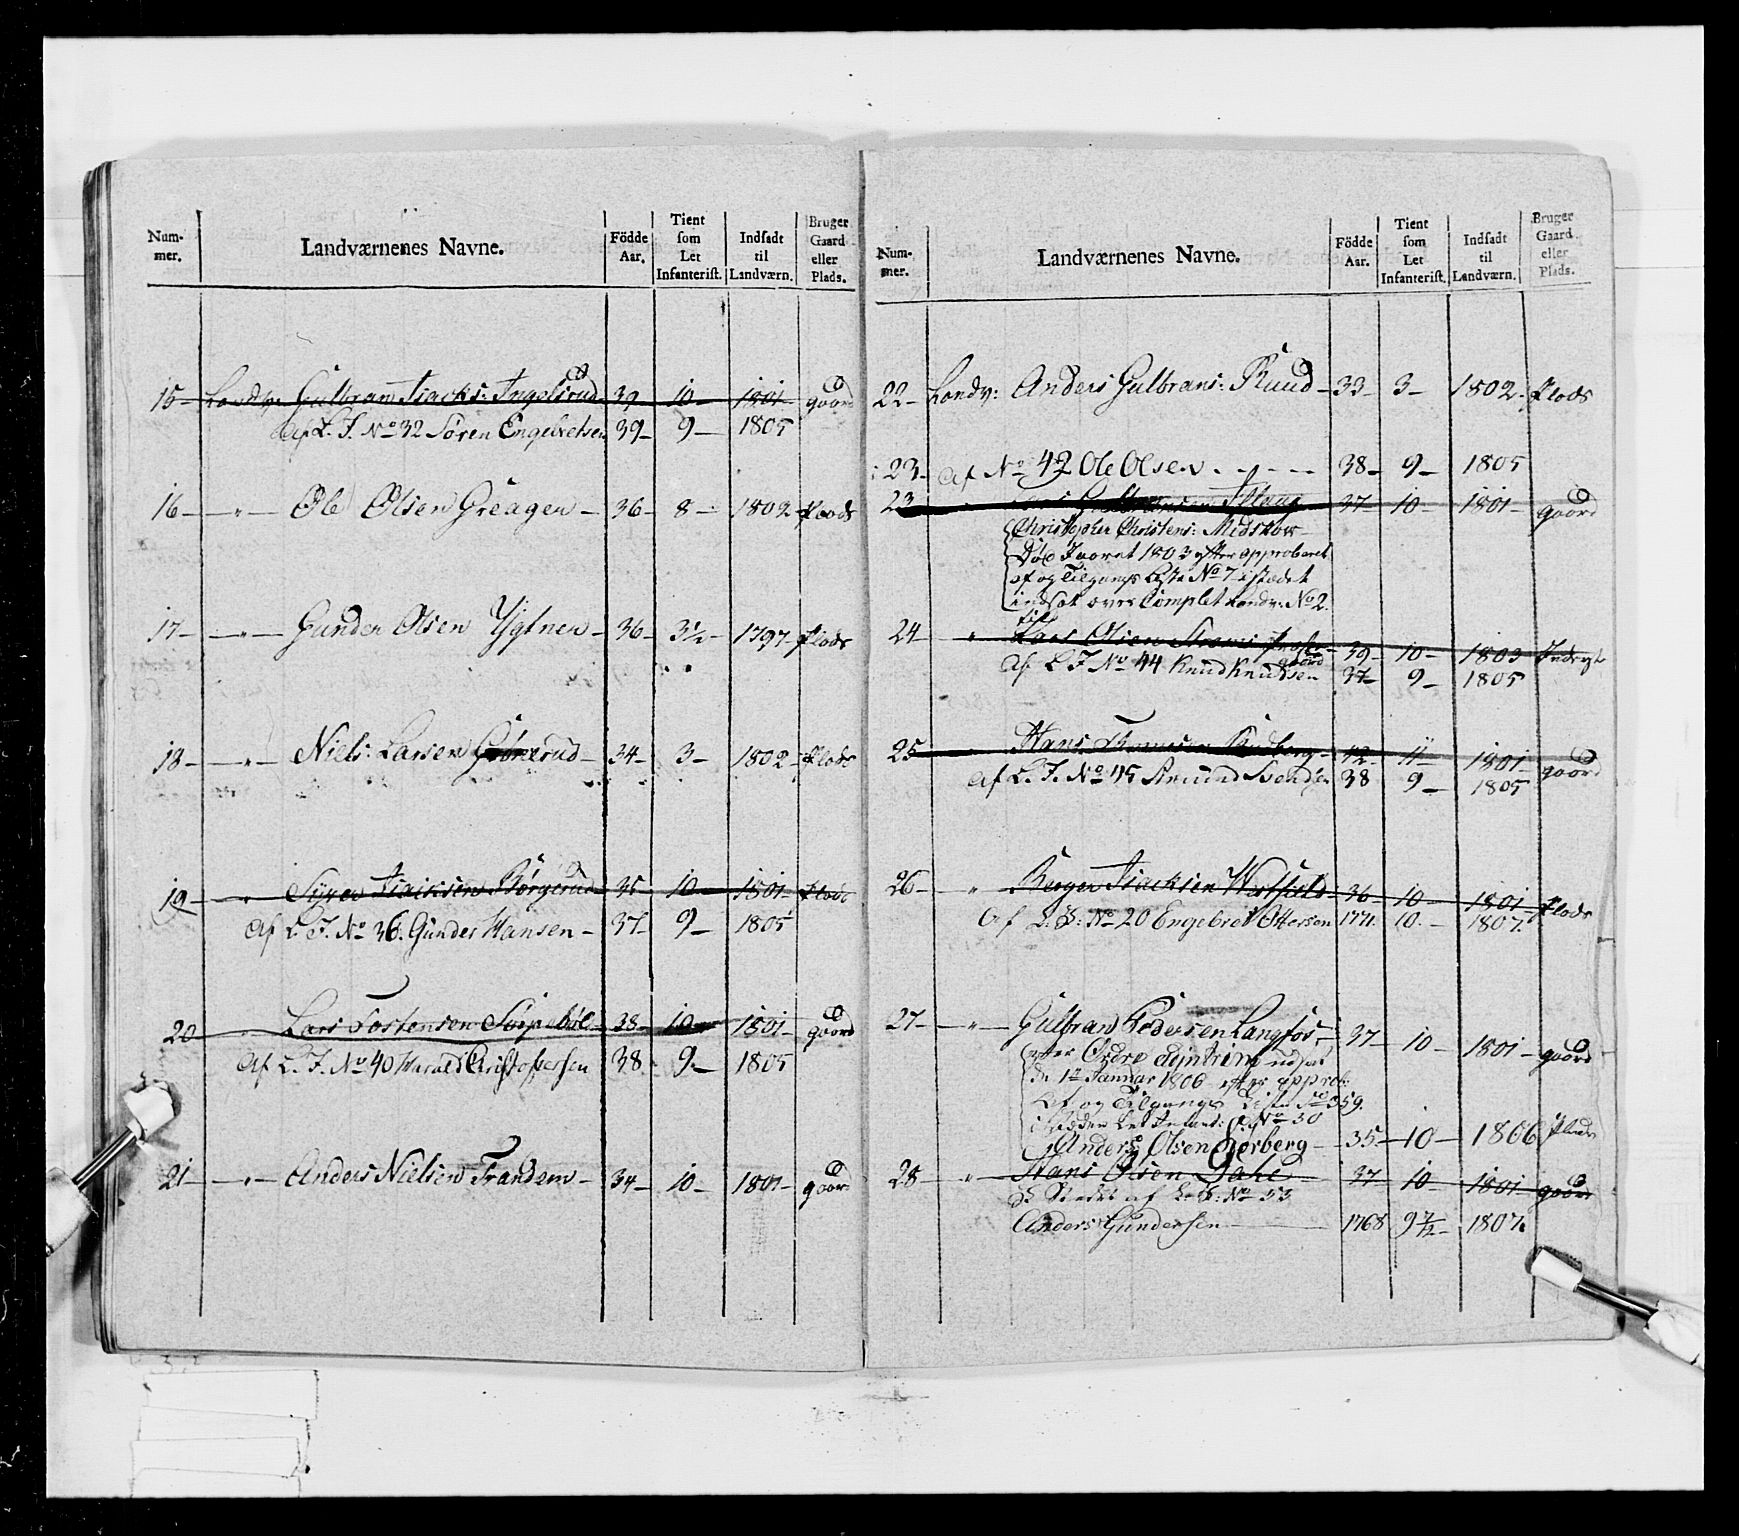 Num-
mer.
Landværnenes Navne.
Födde
Aar.
Tient
som
Let
Infanterist.
Indsadt
til
Landværn.
Bruger
Gaard
eller
Plads.
15 Landv: Gulbran Isacks: Ingelsrud 39 10 1801 gaard
Af L. I. No 32 Sören Engebretsen 39 9 1805
16 " Ole Olsen Greagen 36 8 1802 Plads
17 " Gunder Olsen 36 3½ 1797 Plads
18 " Niels Larsen 34 3 1802 Plads
19 " Isacksen Börgerud 35 10 1801 Plads
Af L. I. No 36. Gunder Hansen 37 9 1805
20 " Lars Tostensen 38 10 1801 gaard
Af L. I. No 40 Harald Christophersen 38 9 1805
21 " Anders Nielsen Trandem 34 10 1801 gaard
Num-
mer.
Landværnenes Navne.
Födde
Aar.
Tient
som
Let
Infanterist.
Indsadt
til
Landværn.
Bruger
Gaard
eller
Plads.
22 Landv: Anders Gulbrans: Ruud 33 3 1802 Plads
23 Af No 42 Ole Olsen 38 9 1805
23 37 10 1801 gaard
Christopher Christens: Midskov
1803 efter approberet
af og Tilgangs Liste No 7 istædet
indsat over Complet Landv: No 2.
24 " Lars Olsen 39 10 1803
Af L I No 44 Knud Knudsen 37 9 1805
25 Hans 42 11 1801 gaard
Af L. I. No 45 Amund Svendsen 38 9 1805
26 " Berger Isacksen 36 10 1801 Plads
Af L. I: No 20 Engebret Ottersen 1771. 10. 1807.
27 " Gulbran Pedersen Langfos 37 10 1801 gaard
efter Ordre udsat
de 1te Januar 1806 efter approb:
Af og Tilgangs Liste 359.
Let Infant: No 50
Anders Olsen 35 10 1806 Plads
28 " Hans Olsen 37 10 1801 gaard
I Stedet af L. I: No 53
Anders Gundersen 1768 9 7/12 1807.